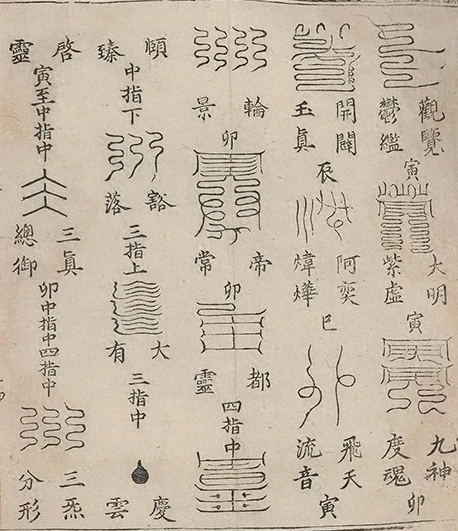 觀覽
鬱繿
寅
大明
紫虛
寅
九神
度魂
卯
開闢
玉眞
辰
阿奕
煒燁
巳
飛天
流音
寅
輪
景
卯
帝
常
卯
都
靈
四指中
臻
中指下
豁
落
三指上
大
有
三指中
慶
雲
啓
靈
寅至中指中
三眞
總御
卯中指中四指中
三炁
分形